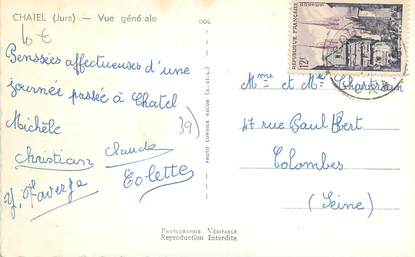 CHATEL (Jura) — Vue générale
10 €
Penssées affectueuses d'une
journée passée à Chatel
Michèle
Christian Claude
Y. Faverge Colette
39
PHOTO COMBIER MACON (S.-ET-L.)
RÉPUBLIQUE FRANÇAISE
12F
Mme et Mr
47 rue Paul Bert
Colombes
(Seine)
PHOTOGRAPHIE VÉRITABLE
Reproduction Interdite